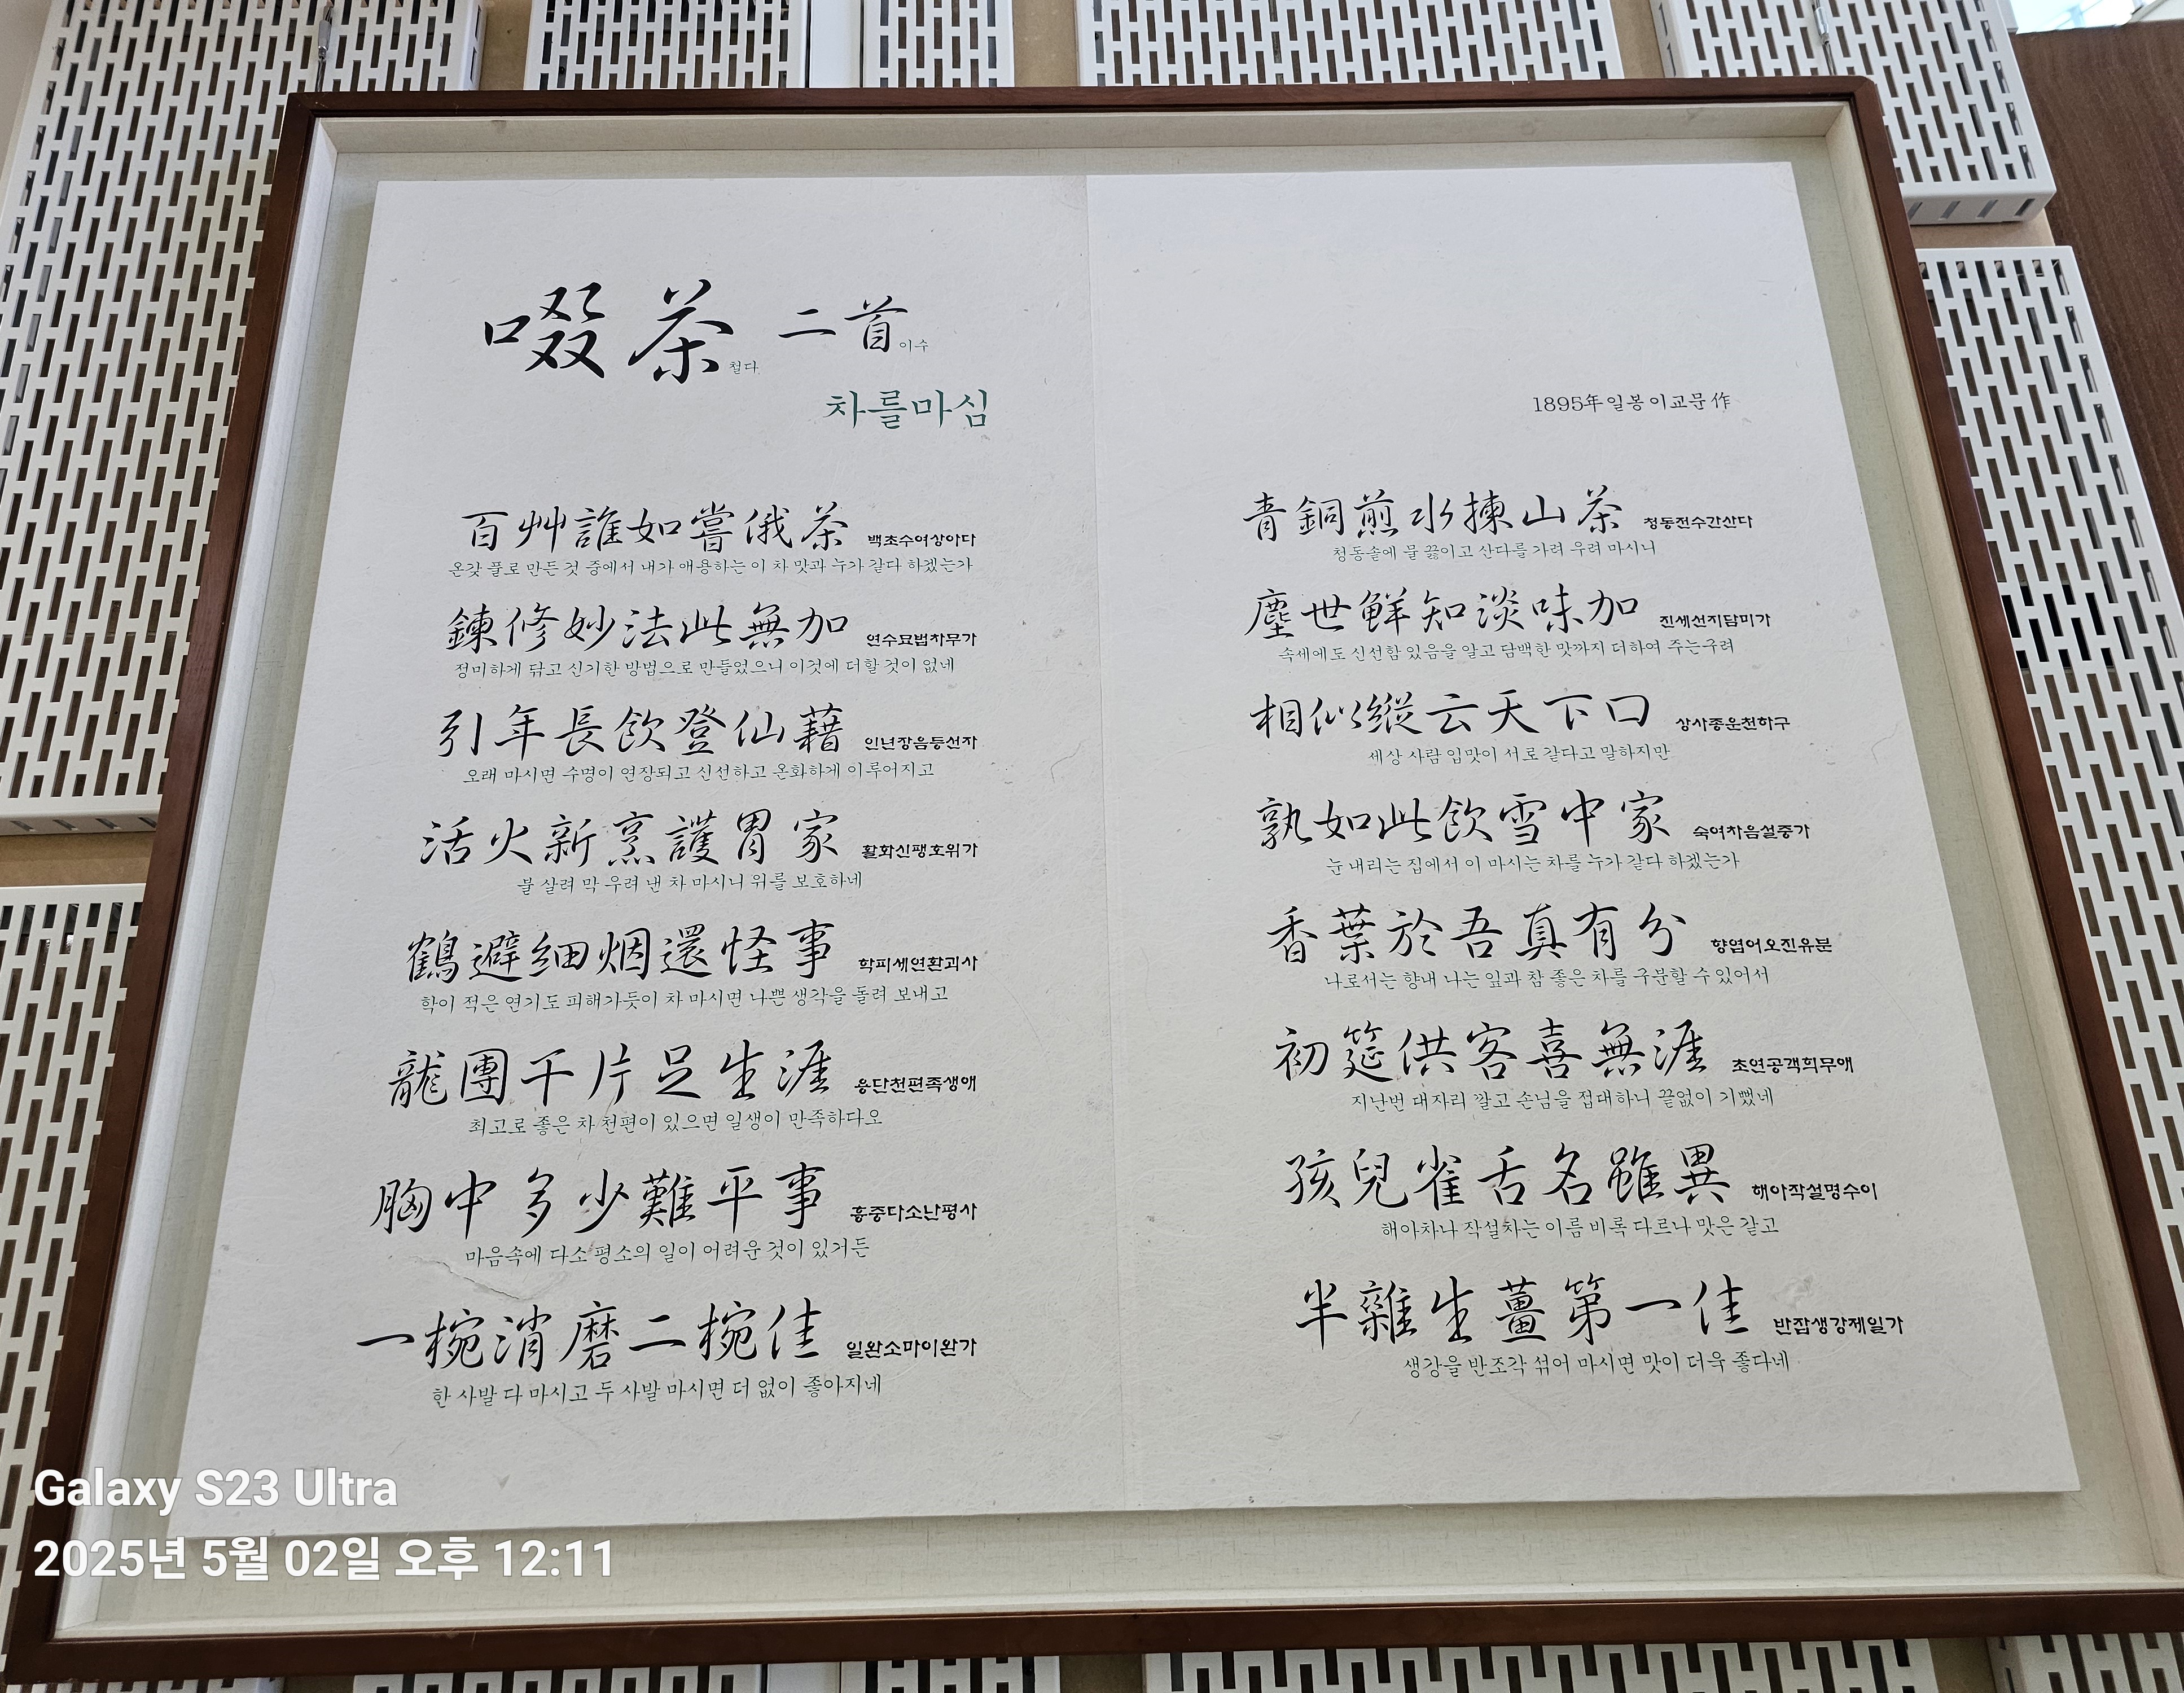 啜茶 철다 二首 이수
차를마심
百艸誰如嘗俄茶 백초수여상아다
온갖 풀로 만든 것 중에서 내가 애용하는 이 차 맛과 누가 같다 하겠는가
鍊修妙法此無加 연수묘법차무가
정미하게 닦고 신기한 방법으로 만들었으니 이것에 더할 것이 없네
引年長飮登仙藉 인년장음등선자
오래 마시면 수명이 연장되고 신선하고 온화하게 이루어지고
活火新烹護胃家 활화신팽호위가
불 살려 막 우려 낸 차 마시니 위를 보호하네
鶴避細烟還怪事 학피세연환괴사
학이 적은 연기도 피해가듯이 차 마시면 나쁜 생각을 돌려 보내고
龍團千片足生涯 용단천편족생애
최고로 좋은 차 천편이 있으면 일생이 만족하다오
胸中多少難平事 흉중다소난평사
마음속에 다소 평소의 일이 어려운 것이 있거든
一椀消磨二椀佳 일완소마이완가
한 사발 다 마시고 두 사발 마시면 더 없이 좋아지네
1895年 일봉 이교문 作
青銅煎水揀山茶 청동전수간산다
청동솥에 물 끓이고 산다를 가려 우려 마시니
塵世鮮知淡味加 진세선지담미가
속세에도 신선함 있음을 알고 담백한 맛까지 더하여 주는구려
相似縱云天下口 상사종운천하구
세상 사람 입맛이 서로 같다고 말하지만
孰如此飮雪中家 숙여차음설중가
눈 내리는 집에서 이 마시는 차를 누가 같다 하겠는가
香葉於吾真有分 향엽어오진유분
나로서는 향내 나는 잎과 참 좋은 차를 구분할 수 있어서
初筵供客喜無涯 초연공객희무애
지난번 대자리 깔고 손님을 접대하니 끝없이 기뻤네
孩兒雀舌名雖異 해아작설명수이
해아차나 작설차는 이름 비록 다르나 맛은 같고
半雜生薑第一佳 반잡생강제일가
생강을 반조각 섞어 마시면 맛이 더욱 좋다네
Galaxy S23 Ultra
2025년 5월 02일 오후 12:11